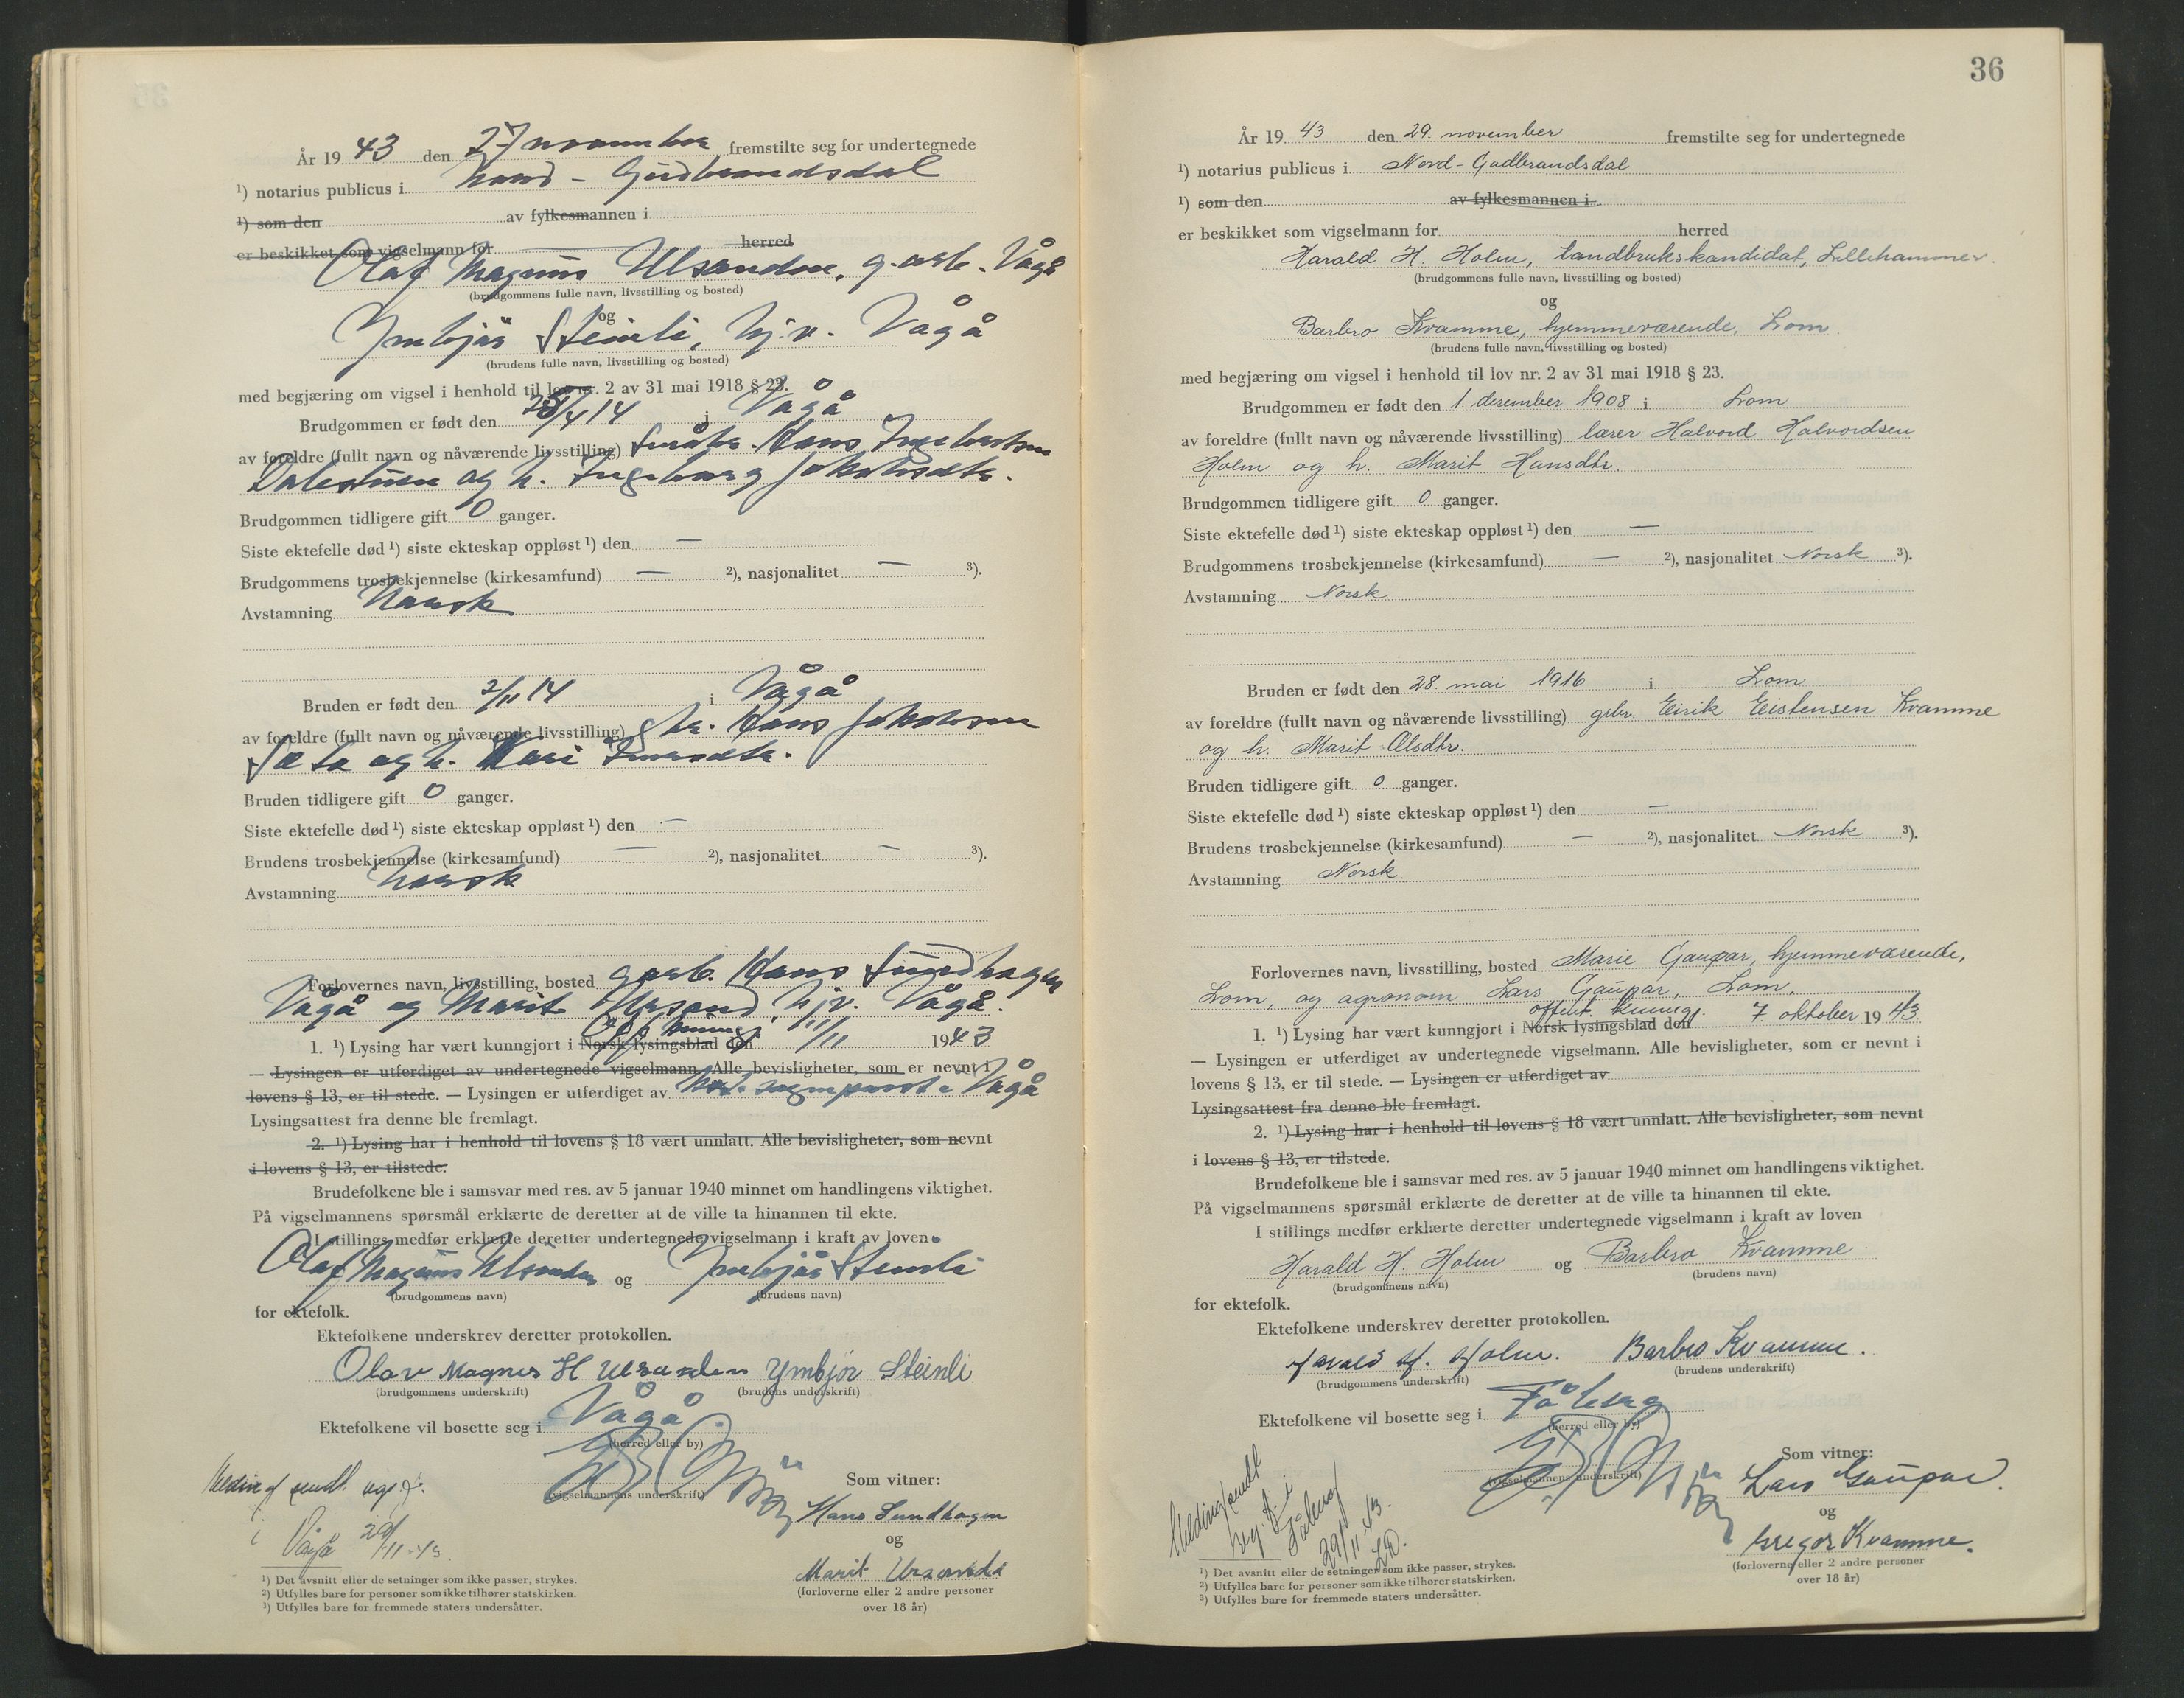 År 19 43 den 27 november fremstilte seg for undertegnede
¹) notarius publicus i Nord-Gudbrandsdal
¹) som den av fylkesmannen i
er beskikket som vigselmann for herred
Olaf Magnus Ulsanden, g.arb. Vågå
(brudgommens fulle navn, livsstilling og bosted)
og
Ymbjør Steinli, hj.v. Vågå
(brudens fulle navn, livsstilling og bosted)
med begjæring om vigsel i henhold til lov nr. 2 av 31 mai 1918 § 23.
Brudgommen er født den /4 14 i Vågå
av foreldre (fullt navn og nåværende livsstilling) småbr. Hans Ingebretsen
og h. Ingeborg Jakobsdtr.
Brudgommen tidligere gift 0 ganger.
Siste ektefelle død ¹) siste ekteskap oppløst ¹) den —
Brudgommens trosbekjennelse (kirkesamfund) — ²), nasjonalitet — ³).
Avstamning Norsk
Bruden er født den 2/11 14 i Vågå
av foreldre (fullt navn og nåværende livsstilling) Hans Jakobsen
Sæta og h. Kari
Bruden tidligere gift 0 ganger.
Siste ektefelle død ¹) siste ekteskap oppløst ¹) den —
Brudens trosbekjennelse (kirkesamfund) — ²), nasjonalitet — ³).
Avstamning Norsk
Forlovernes navn, livsstilling, bosted garb. Hans Sundhagen
Vågå og Marit Ursand, hjv. Vågå.
1. ¹) Lysing har vært kunngjort i Norsk lysingsblad den /11 1943
— Lysingen er utferdiget av undertegnede vigselmann. Alle bevisligheter, som er nevnt i
lovens § 13, er til stede. — Lysingen er utferdiget av sogneprest i Vågå
Lysingsattest fra denne ble fremlagt.
2. ¹) Lysing har i henhold til lovens § 18 vært unnlatt. Alle bevisligheter, som nevnt
i lovens § 13, er tilstede.
Brudefolkene ble i samsvar med res. av 5 januar 1940 minnet om handlingens viktighet.
På vigselmannens spørsmål erklærte de deretter at de ville ta hinannen til ekte.
I stillings medfør erklærte deretter undertegnede vigselmann i kraft av loven
Olaf Magnus Ulsanden og Ymbjør Steinli
(brudgommens navn) (brudens navn)
for ektefolk.
Ektefolkene underskrev deretter protokollen.
Olav Magnus H Ulsanden Ymbjør Steinli
(brudgommens underskrift) (brudens underskrift)
Ektefolkene vil bosette seg i Vågå
(herred eller by)
(vigselmannens underskrift)
Som vitner:
Hans Sundhagen
og
Marit Ursanda
(forloverne eller 2 andre personer
over 18 år)
Melding sendt regf.
i Vågå 29/11-43
¹) Det avsnitt eller de setninger som ikke passer, strykes.
²) Utfylles bare for personer som ikke tilhører statskirken.
³) Utfylles bare for fremmede staters undersåtter.
36
År 19 43 den 29. november fremstilte seg for undertegnede
¹) notarius publicus i Nord-Gudbrandsdal
¹) som den av fylkesmannen i
er beskikket som vigselmann for herred
Harald H. Holm, landbrukskandidat, Lillehammer.
(brudgommens fulle navn, livsstilling og bosted)
og
Barbro Kvamme, hjemmeværende, Lom.
(brudens fulle navn, livsstilling og bosted)
med begjæring om vigsel i henhold til lov nr. 2 av 31 mai 1918 § 23.
Brudgommen er født den 1 desember 1908 i Lom
av foreldre (fullt navn og nåværende livsstilling) lærer Halvord Halvordsen
Holm og h. Marit Hansdtr.
Brudgommen tidligere gift 0 ganger.
Siste ektefelle død ¹) siste ekteskap oppløst ¹) den —
Brudgommens trosbekjennelse (kirkesamfund) — ²), nasjonalitet Norsk ³).
Avstamning Norsk
Bruden er født den 28. mai 1916 i Lom
av foreldre (fullt navn og nåværende livsstilling) grbr. Eirik Eistensen Kvamme
og h. Marit Olsdtr.
Bruden tidligere gift 0 ganger.
Siste ektefelle død ¹) siste ekteskap oppløst ¹) den —
Brudens trosbekjennelse (kirkesamfund) — ²), nasjonalitet Norsk ³).
Avstamning Norsk.
Forlovernes navn, livsstilling, bosted Marie Gaupar, hjemmeværende,
Lom, og agronom Lars Gaupar, Lom.
offentl. kunngj.
1. ¹) Lysing har vært kunngjort i Norsk lysingsblad den 7 oktober 1943.
— Lysingen er utferdiget av undertegnede vigselmann. Alle bevisligheter, som er nevnt i
lovens § 13, er til stede. — Lysingen er utferdiget av
Lysingsattest fra denne ble fremlagt.
2. ¹) Lysing har i henhold til lovens § 18 vært unnlatt. Alle bevisligheter, som nevnt
i lovens § 13, er tilstede.
Brudefolkene ble i samsvar med res. av 5 januar 1940 minnet om handlingens viktighet.
På vigselmannens spørsmål erklærte de deretter at de ville ta hinannen til ekte.
I stillings medfør erklærte deretter undertegnede vigselmann i kraft av loven
Harald H. Holm og Barbro Kvamme
(brudgommens navn) (brudens navn)
for ektefolk.
Ektefolkene underskrev deretter protokollen.
Harald H. Holm. Barbro Kvamme.
(brudgommens underskrift) (brudens underskrift)
Ektefolkene vil bosette seg i Fåberg
(herred eller by)
(vigselmannens underskrift)
Som vitner:
Lars Gaupar.
og
Gregor Kvamme.
(forloverne eller 2 andre personer
over 18 år)
Melding sendt
reg.f. i
Fåberg
29/11-43.
¹) Det avsnitt eller de setninger som ikke passer, strykes.
²) Utfylles bare for personer som ikke tilhører statskirken.
³) Utfylles bare for fremmede staters undersåtter.